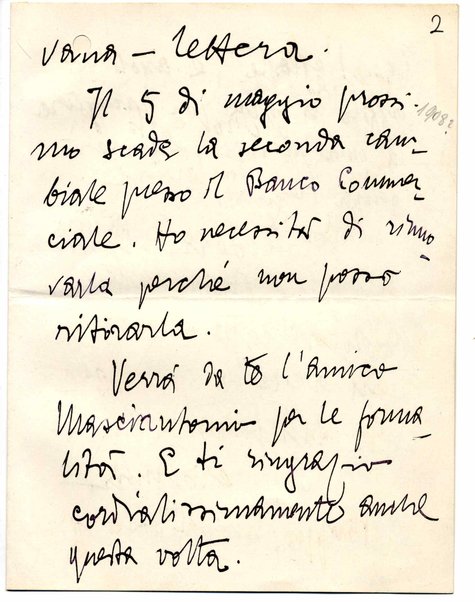 2
vana - lettera.
Il 5 di maggio prossi-
1908?
mo scade la seconda cam-
biale presso il Banco Commer-
ciale. Ho necessità di rinno-
varla perché non posso
ritirarla.
Verrà da te l'amico
Masciantonio per le forma-
lità. E ti ringrazio
cordialissimamente anche
questa volta.